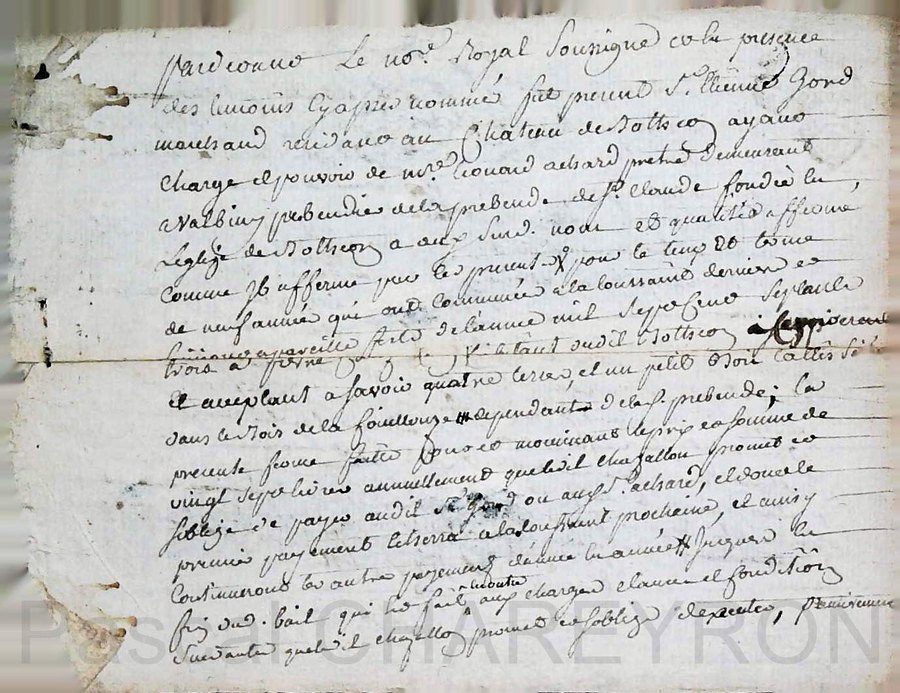 pardevant Le no.re Royal Soussigné et la presence
des temoins cyaprès nommés fut present S.r Etienne Gord
marchand residant au Chateau de Bothéon ayant
charge et pouvoir de m.re achard pretre demeurant
a Valbin prebendier de la prebende de S.t Claude fondée en
L'eglize de Bothéon a aux Susd. nom et qualités affermé
comme Il afferme par les presentes pour le temp et terme
de neuf année qui ont Commencée a la toussaint derniere et
finiront a pareille fete de l'année mil Sept Cent Septante
trois a
et aceptant a Savoir quatre terres, et un petit Bois taillis
dans le Bois de la fouillouze dependant de la d. prebende; la
presente ferme faitte moienant le prix et somme de
vingt Sept livres annuellement que led.it Chazallon promet et
s'oblige de payer audit S.r Gord ou aud. S.r achard, et dont le
premier payement Echerra a la toussaint prochaine, et ainsy
Continueront les autre payements d'année en année Jusques en
fin dud. bail qui est fait en outre aux charges clause et Condition
Suivantes que led.it Chazallon promet et s'oblige d'executer, Premierement
Pascal CHAREYRON